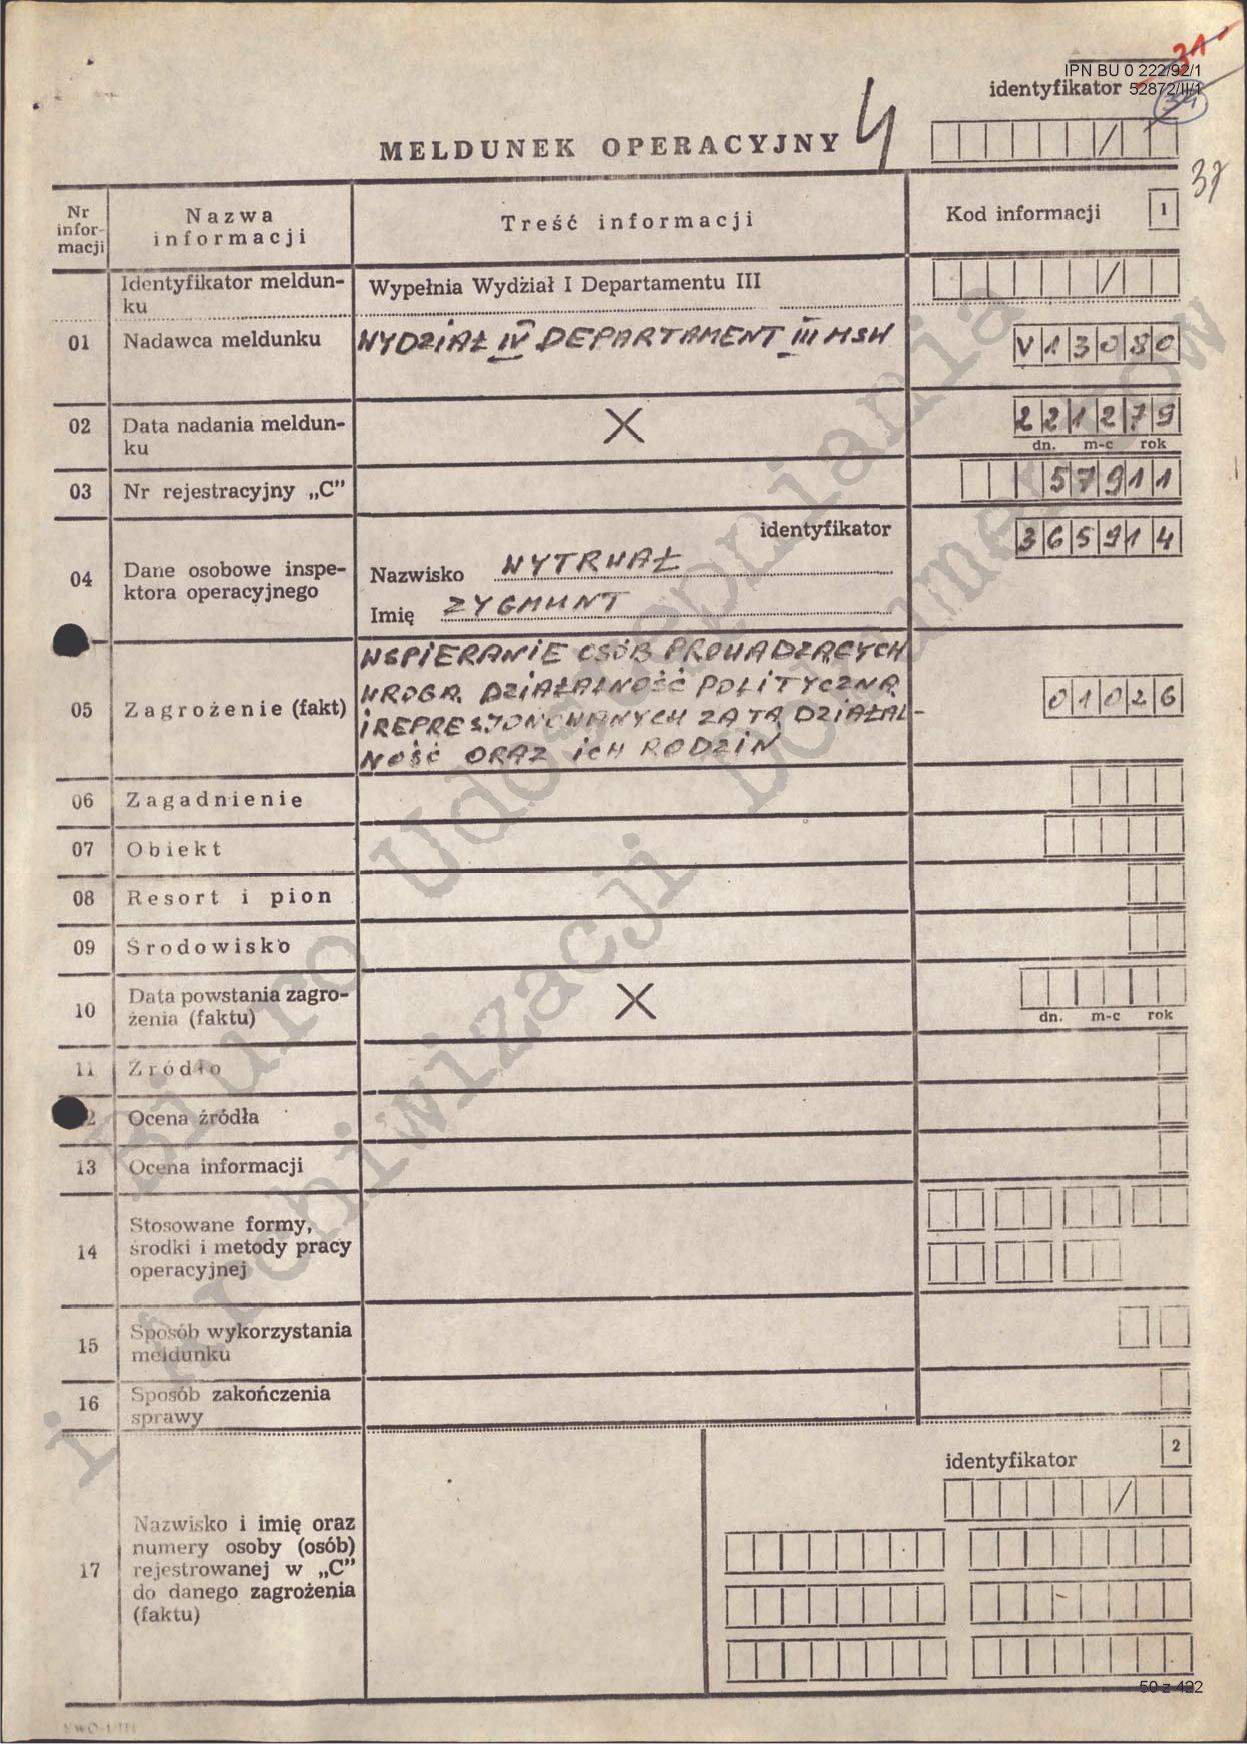 31
IPN BU 0 222/92/1
identyfikator 52872/II/1
34
MELDUNEK OPERACYJNY 4
37
Nr infor- macji
Nazwa informacji
Treść informacji
Kod informacji 1
Identyfikator meldun- ku
Wypełnia Wydział I Departamentu III
01 Nadawca meldunku WYDZIAŁ IV DEPARTAMENT III MSW V13080
02 Data nadania meldun- ku X 221279
dn. m-c rok
03 Nr rejestracyjny „C” 57911
04 Dane osobowe inspe- ktora operacyjnego
identyfikator 365914
Nazwisko WYTRWAŁ
Imię ZYGMUNT
05 Zagrożenie (fakt) 01026
WSPIERANIE OSÓB PROWADZĄCYCH
WROGĄ DZIAŁALNOŚĆ POLITYCZNĄ
I REPRESJONOWANYCH ZA TĄ DZIAŁAL-
NOŚĆ ORAZ ICH RODZIN
06 Zagadnienie
07 Obiekt
08 Resort i pion
09 Środowisko
10 Data powstania zagro- żenia (faktu) X
dn. m-c rok
11 Źródło
12 Ocena źródła
13 Ocena informacji
14 Stosowane formy, środki i metody pracy operacyjnej
15 Sposób wykorzystania meldunku
16 Sposób zakończenia sprawy
identyfikator 2
17 Nazwisko i imię oraz
numery osoby (osób)
rejestrowanej w „C”
do danego zagrożenia
(faktu)
50 z 422
Biuro Udostępniania
i Archiwizacji Dokumentów